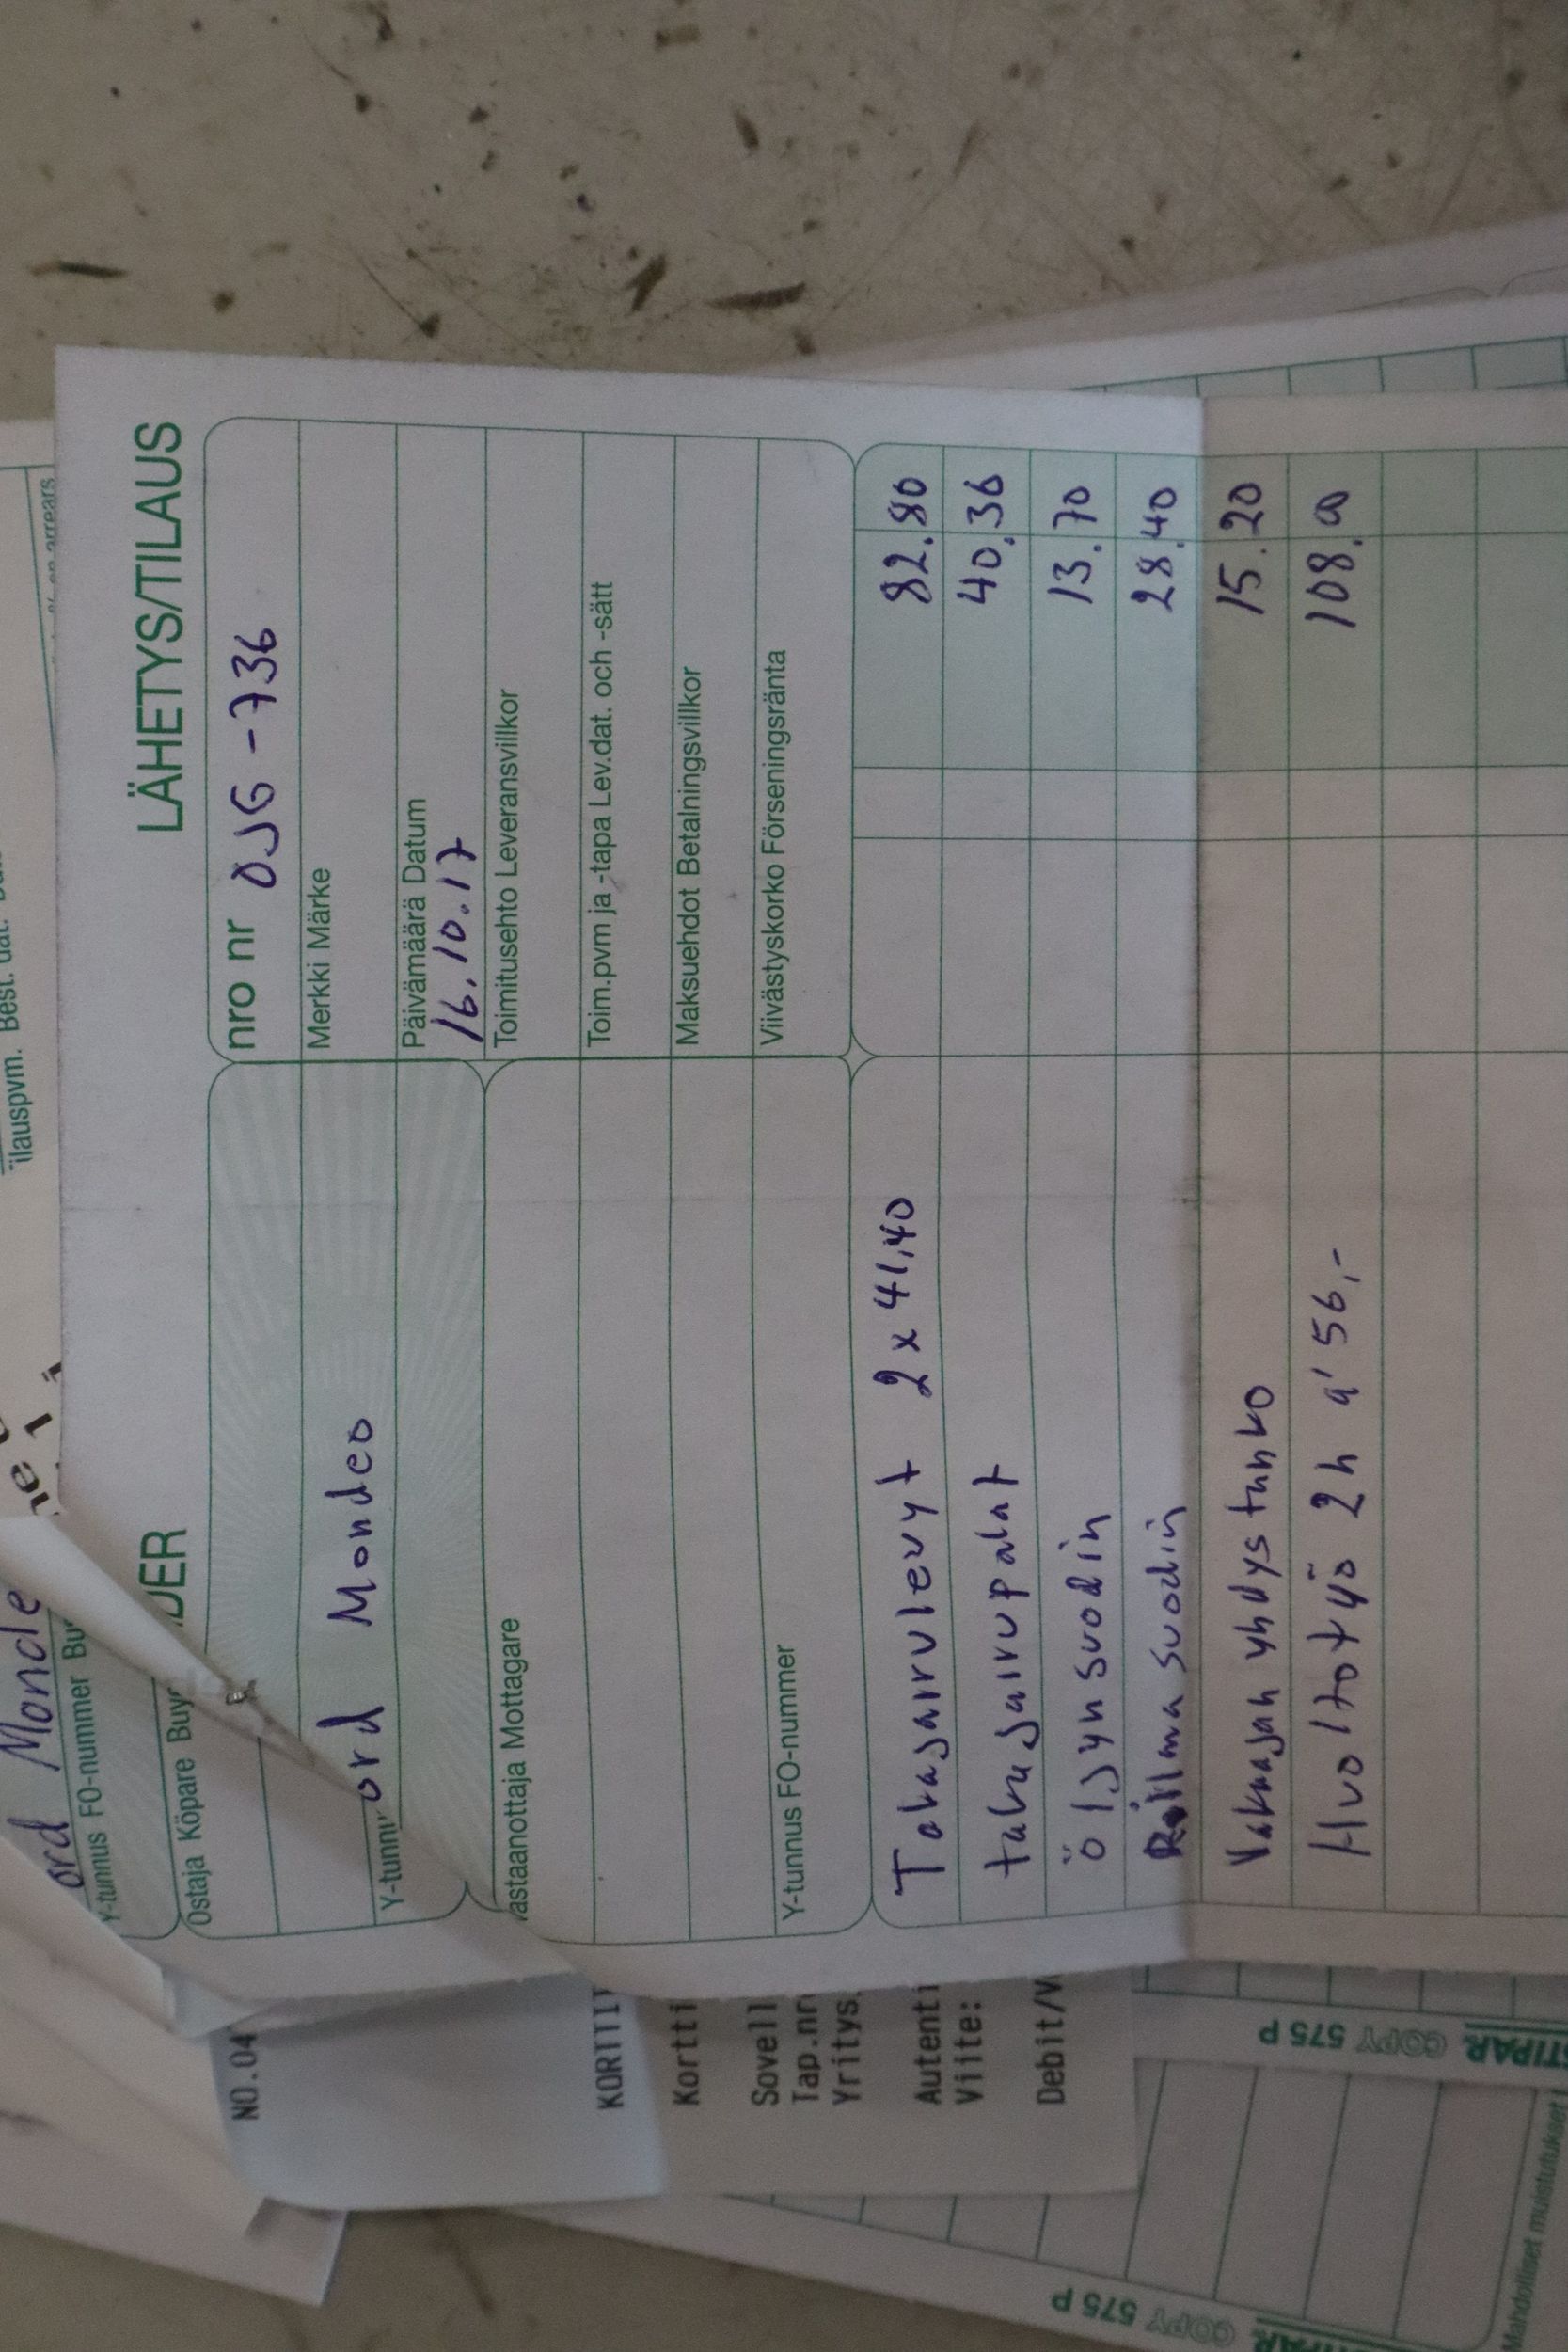 LÄHETYS/TILAUS
DER
nro nr OJG-736
Merkki Märke
Päivämäärä Datum
16.10.17
Toimitusehto Leveransvillkor
Toim.pvm ja -tapa Lev.dat. och -sätt
Maksuehdot Betalningsvillkor
Viivästyskorko Förseningsränta
ord Mondeo
Y-tunnu
astaanottaja Mottagare
Y-tunnus FO-nummer
Takajarrulevyt 2 x 41,40 82.80
takajarrupalat 40.36
öljynsuodin 13.70
Railma suodin 28.40
Vakaajan yhdystanko 15.20
Huoltotyö 2h a' 56,- 108.00
ord Monde
Y-tunnus FO-nummer Bu
Ostaja Köpare Buy
ilauspvm. Best. dat.
% on arrears
NO.04
KORTTI
Kortti
Sovell
Tap.nr
Yritys.
Autenti
Viite:
Debit/V
TIPAR COPY 575 P
TIPAR COPY 575 P
Mahdolliset muistutukset